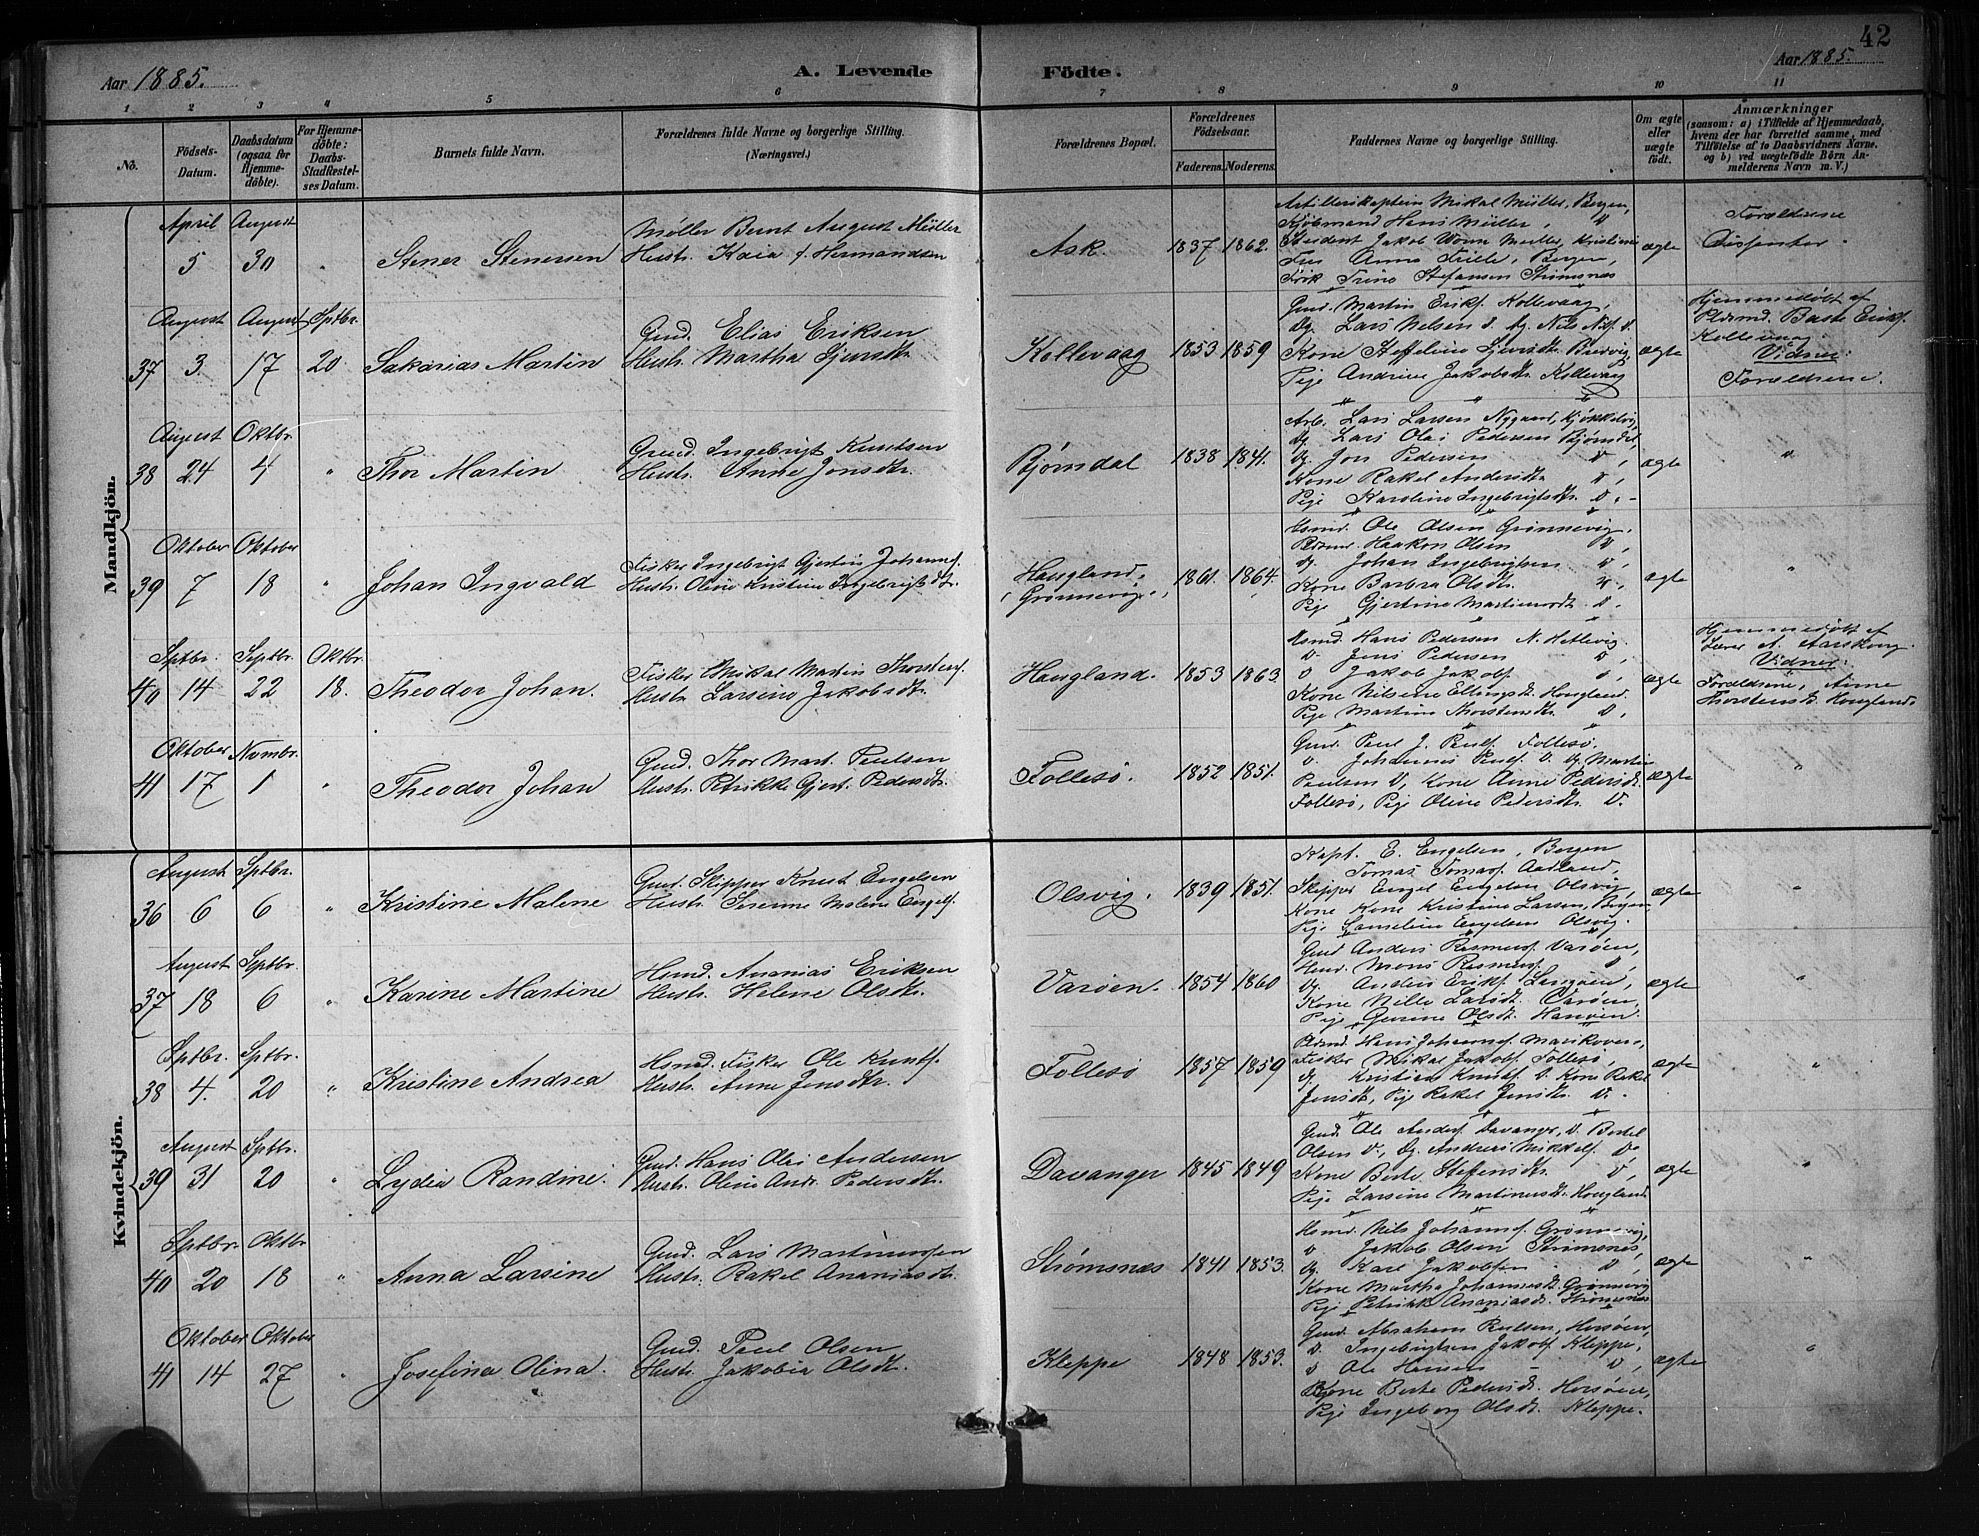 42
Aar 1885.
A. Levende
Födte.
Aar 1885.
1 2 3 4 5 6 7 8 9 10 11
No.
Födsels-Datum.
Daabsdatum (ogsaa for Hjemme-döbte).
For Hjemme-döbte: Daabs-Stadfæstel-ses Datum.
Barnets fulde Navn.
Forældrenes fulde Navne og borgerlige Stilling. (Næringsvei.)
Forældrenes Bopæl.
Forældrenes Födselsaar.
Faderens. Moderens.
Faddernes Navne og borgerlige Stilling.
Om ægte eller uægte födt.
Anmærkninger
(saasom: a) i Tilfælde af Hjemmedaab, hvem der har forrettet samme, med Tilföielse af to Daabsvidners Navne. og b) ved uægtefödte Börn An-melderens Navn m. V.)
Mandkjön.
April August
5 30 " Stener Stenersen
Møller Bernt August Müller
Hustr. Kaia f. Hermandsen
Ask. 1837 1862.
Artillerikaptein Mikal Müller, Bergen,
Kjøbmand Hans Müller, D
Student Jakob Worm Müller, Kristiania
Fru Anna Friele, Bergen,
Frøk Trine Stefansen Strømsnes
ægte
Forældrene
Dissenter.
August August Septbr.
37 3 17 20. Sakarias Martin
Gmd. Elias Eriksen
Hustr. Martha Sjursdtr.
Kollevaag 1853 1859
Gmd. Martin Eriks. Kollevaag,
Ug. Lars Nelsen D. Ug. Nils Nils. D.
Kone Steffeline Sjursdtr. Bredvig
Pige Andrine Jakobsdtr. Kollevaag
ægte
Hjemmedøbt af
Pldsmd. Baste Eriks.
Kollevaag
Vidner:
Forældrene.
August Oktbr.
38 24 4 " Thor Martin
Gmd. Ingebrigt Knutsen
Hustr. Anne Jonsdtr.
Bjørndal 1838 1841.
Arb. Lars Larsen Nygaard,
Ug. Lars Olai Pedersen Bjørndal,
Ug. Jon Pedersen D,
Kone Rakel Andersdtr. D,
Pige Karoline Ingebrigtsdtr. D.
ægte "
Oktober Oktober
39 7 18 " Johan Ingvald
Fisker Ingebrigt Gjertin Johanns.
Hustr. Oline Kristine Ingebrigtsdtr.
Haugland,
(Grønnevig.) 1861. 1864.
Hsmd. Ole Olsen Grønnevig.
Pldsmd. Haakon Olsen D,
Ug. Johan Ingebrigtsen D,
Kone Barbra Olsdtr. D,
Pige Gjertine Martinusdtr. D.
ægte "
Septbr. Septbr. Oktbr.
40 14 22 18. Theodor Johan.
Fisker Mikal Martin Thorstens.
Hustr. Larsine Jakobsdtr.
Haugland. 1853 1863
Hsmd. Hans Pedersen N. Hetlevig.
D. Jens Pedersen D,
D Jakob Jakobs. D,
Kone Nilsine Ellingsdtr. Haugland,
Pige Martine Thorstensdtr. D,
ægte
Hjemmedøbt af
Lærer A. Aarskoug.
Vidner:
Forældrene, Anne
Thorstensdtr. Haugland.
Oktober Novmbr.
41 17 1 " Theodor Johan
Gmd. Thor Mart. Paulsen
Hustr. Petrikke Gjert. Pedersdtr.
Follesø. 1852 1851.
Gmd. Paul J. Pauls. Follesø.
D. Johannes Pauls. D. Ug. Martin
Paulsen D, Kone Anne Pedersdtr.
Follesø, Pige Oline Pedersdtr. D.
ægte "
Kvindekjön.
August Sptbr.
36 6 6 " Kristine Malene
Gmd. Skipper Knut Engelsen
Hustr. Serenne Malene Engels.
Olsvig. 1839 1851.
Kapt. E. Engelsen, Bergen
Tomas Tomas. Aadland,
Skipper Engel Engelsen Olsvig,
Kone Kristine Larsen, Bergen,
Pige Engelsen Olsvig.
ægte "
August Septbr.
37 18 6 " Karine Martine
Hsmd. Ananias Eriksen
Hustr. Helene Olsdtr.
Varøen. 1854 1860
Gmd Anders Rasmus. Varøen,
Hsmd. Mons Rasmus. D,
Ug. Anders Eriks.
Kone Nille Larsdtr. Varøen,
Pige Gurine Olsdtr. Hanøen.
ægte "
Sptbr. Sptbr.
38 4. 20 " Kristine Andrea
Hsmd. Fisker Ole Knuts.
Hustr. Anne Jensdtr.
Follesø 1857 1859
Pldsmd. Hans Johannes.
Fisker Mikal Jakobs. Follesø,
Ug. Kristian Knuts. D. Kone Rakel
Jensdtr, Pige Rakel Jensdtr. D.
ægte "
August Sptbr.
39 31 20 " Lydia Randine.
Gmd. Hans Olai Andersen
Hustr. Oline Andr. Pedersdtr.
Davanger 1845 1849
Gmd. Ole Anders. Davanger, D. Bertel
Olsen D., Ug. Andreas Mikkels. D.
Kone Berte Steffensdtr. D,
Pige Larsine Martinusdtr. Haugland
ægte "
Sptbr. Oktbr.
40 20 18 " Anna Larsine
Gmd. Lars Martinussen
Hustr. Rakel Ananiasdtr.
Strømsnæs 1841 1853.
Hsmd. Nils Johanns. Grønnevig,
D. Jakob Olsen Strømsnes,
Ug. Karl Jakobsen D,
Kone Martha Johannesdtr. Grønnevig
Pige Petrikk. Ananiasdtr. Strømsnæs
ægte "
Oktober Oktober
41 14 27 " Josefina Olina.
Gmd. Paul Olsen
Hustr. Jakobia Olsdtr.
Kleppe 1848 1853.
Gmd. Abraham Paulsen, Horsøen,
D. Ingebrigtsen Jakob. Kleppe,
D Ole Hansen D,
Kone Berte Pedersdtr. Horsøen,
Pige Ingeborg Olsdtr. Kleppe.
ægte "